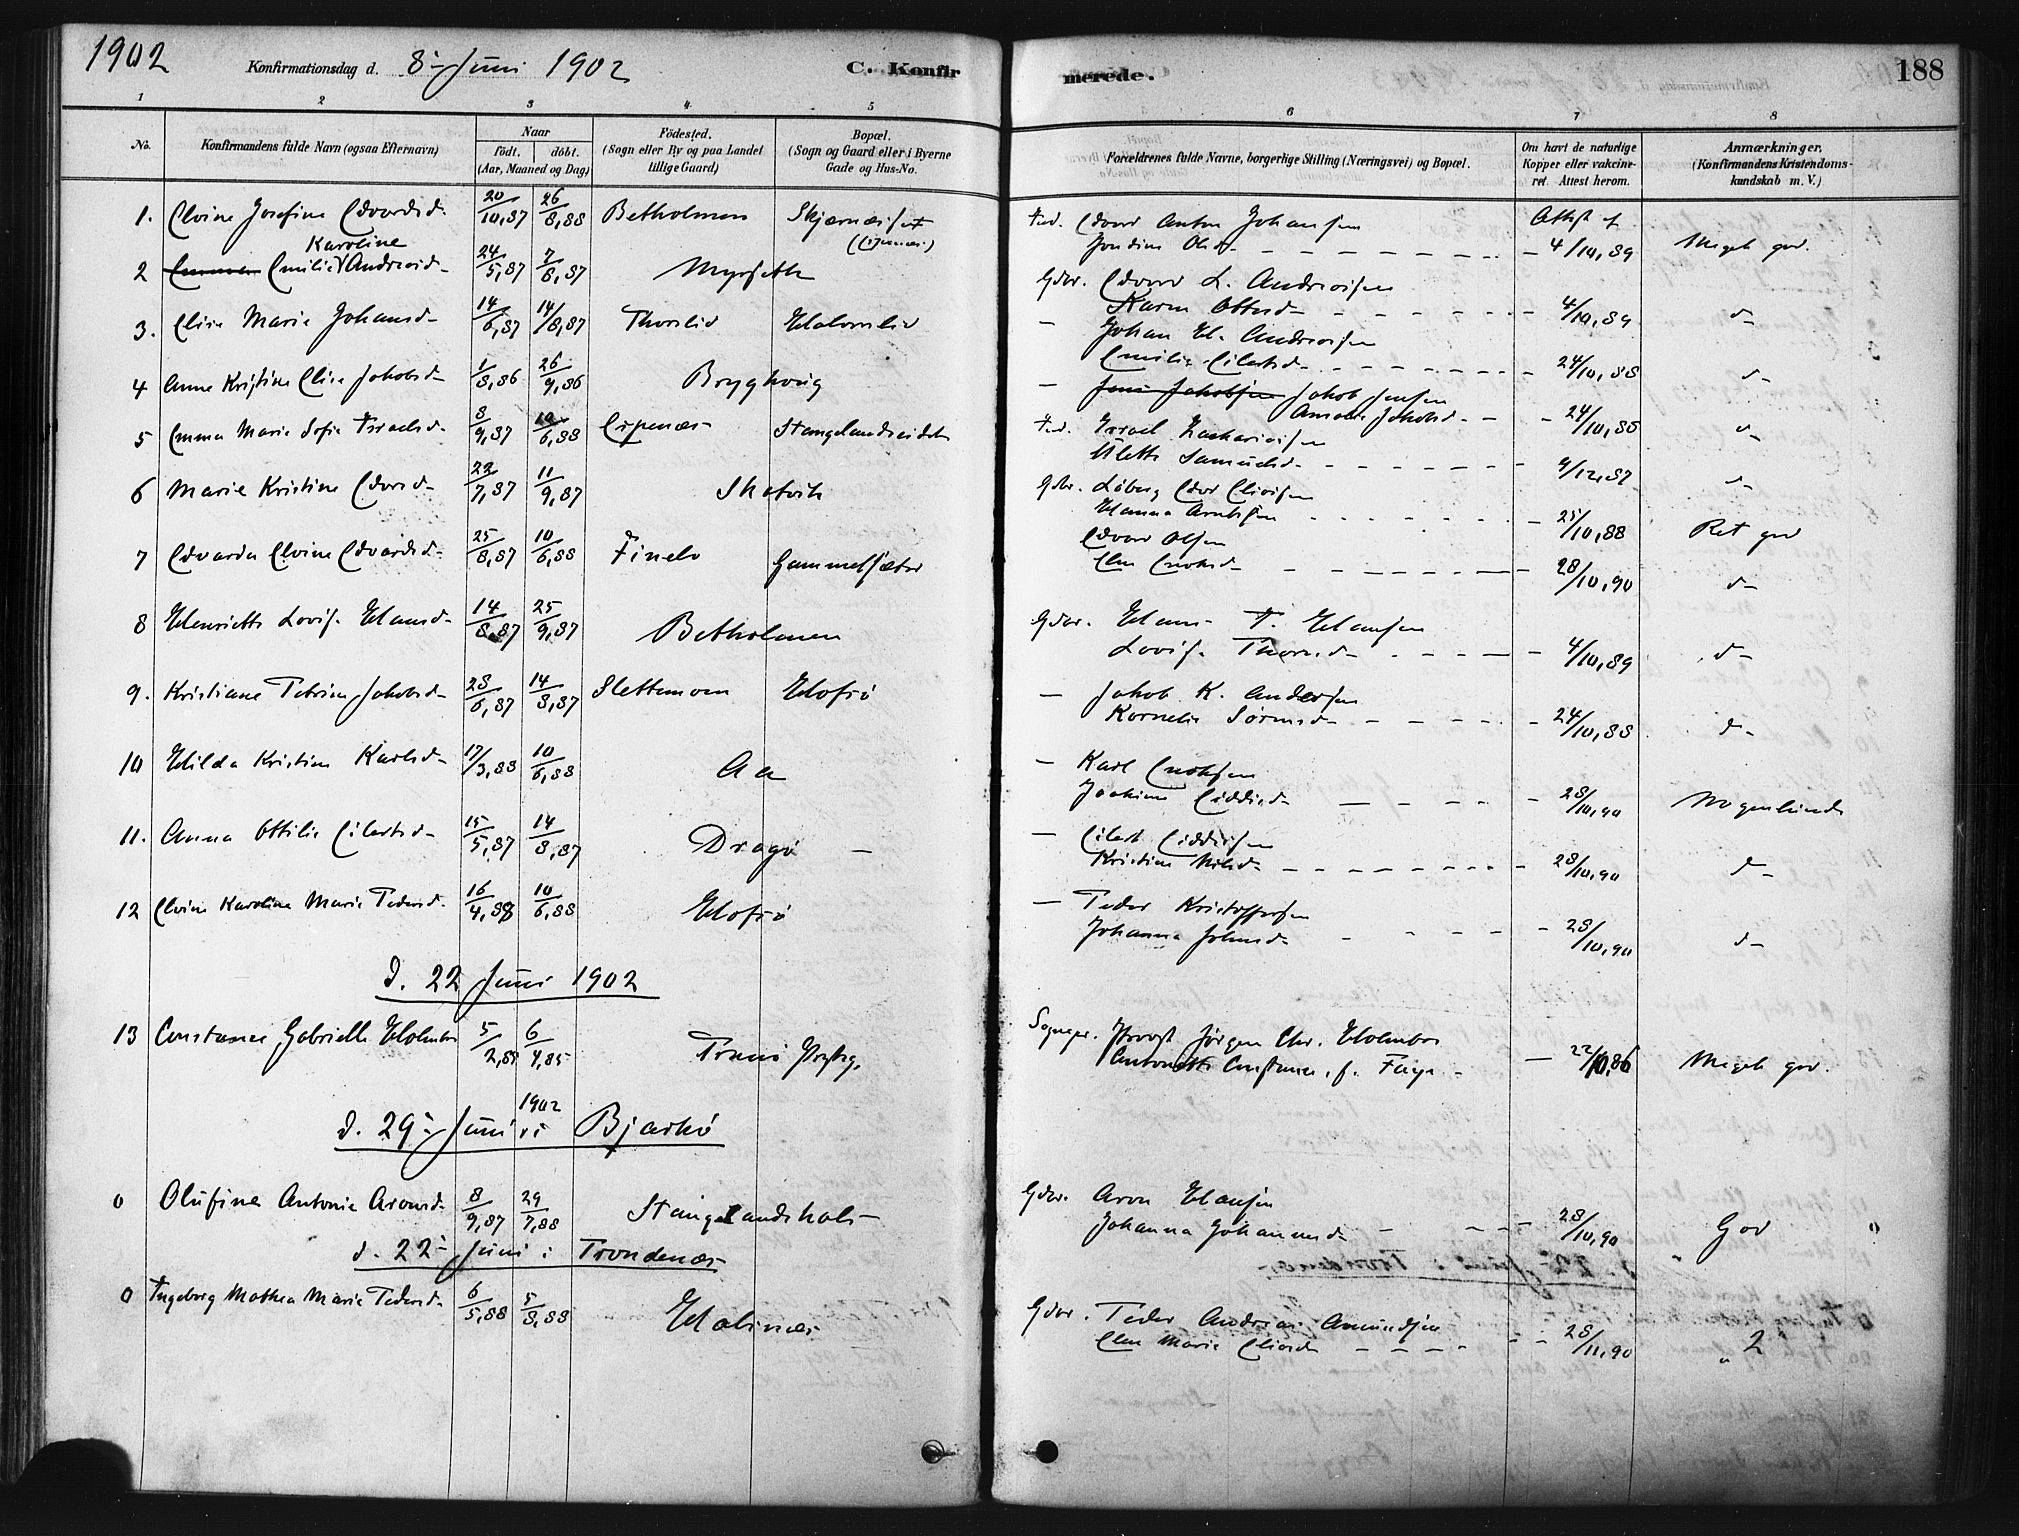 1902
Konfirmationsdag d. 8- Juni 1902
C. Konfirmerede.
188
1 2 3 4 5 6 7 8
No.
Konfirmandens fulde Navn (ogsaa Efternavn)
Naar
födt. döbt.
(Aar, Maaned og Dag)
Födested.
(Sogn eller By og paa Landet
tillige Gaard)
Bopæl.
(Sogn og Gaard eller i Byerne
Gade og Hus-No.
Forældrenes fulde Navne, borgerlige Stilling (Næringsvei) og Bopæl.
Om havt de naturlige
Kopper eller vakcine-
ret. Attest herom.
Anmærkninger.
(Konfirmandens Kristendoms-
kundskab m. V.)
1. Elvine Josefine Edvardsd. 20/10,87 26/8,88 Betholmen
Edvard Anton Johansen Attest af
4/10,89 Meget god.
Karoline
2 Emilie Andreasd- 24/5,87 7/8,87 Myrseth Gdbr. Edvard L. Andreasen
Karen Ottesd- 4/10,89 d-
3. Elise Marie Johansd- 14/6,87 14/8,87 Thorslid - Johan H. Andreasen
24/10,88 d-
4 Anne Kristine Elise Jakobsd- 1/8,86 26/9,86 Bryghaug - Jens Jakobsen Jakob Jensen
24/10,88 d-
5 Emma Marie Sofie Israelsd. 8/9,87 10/6,88 Espenes Stangelandseidet Israel Zachariasen
Olette Samuelsd- 9/12,87 d-
6 Marie Kristine Edvardsd- 11/9,87 Skatvik Gdbr.
25/10,88 Ret god
7 Edvarda Elvine Edvardsd- 25/8,87 10/6,88 Finelv Gammelsæter Edvard Olsen
28/10,90 d-
8 Henriette Lovise Hansd- 14/8,87 25/9,87 Betholmen Gdbr. Hans T. Hansen
Lovise 4/10,89 d-
9. Kristiane Petrine Jakobsd- 28/6,87 14/8,87 Slettemoen Hofsö - Jakob K. Andersen
Kornelia Sörensd- 24/10,88 d-
10 Hilda Kristine Karlsd- 17/3,88 10/6,88 Aa - Karl Enoksen
28/10,90 Nogenlunde
11. Anna Ottilie Eilertsd- 15/5,87 14/8,87 Dragö - Eilert
Kristine Nilsd- 28/10,90 d-
12 Elvine Karoline Marie Pedersd. 16/4,88 10/6,88 Hofsö - Peder Kristoffersen
Johanna Johnsd- 28/10,90 d-
d. 22 Juni 1902
13 Constance Gabrielle Holmboe 5/2,85 6/4,85 Tranö Prstg. Sognepr. Provst Jörgen Chr. Holmboe
Antonette Constance, f. Faye - 22/10,86 Meget god.
d. 29- Juni 1902 i Bjarkö
0 Olufine Antonie Aronsd- 8/9,87 29/7,88 Stangelandshals- Gdbr. Aron Hansen
Johanna Johannesd- 28/10,90 God 0
d. 22- Juni i Trondenæs
0 Ingeborg Mathea Marie Pedersd- 6/5,88 5/8,88 Gdbr. Peder Andreas Amundsen
Elen Marie Eliasd- 28/11,90 " 2